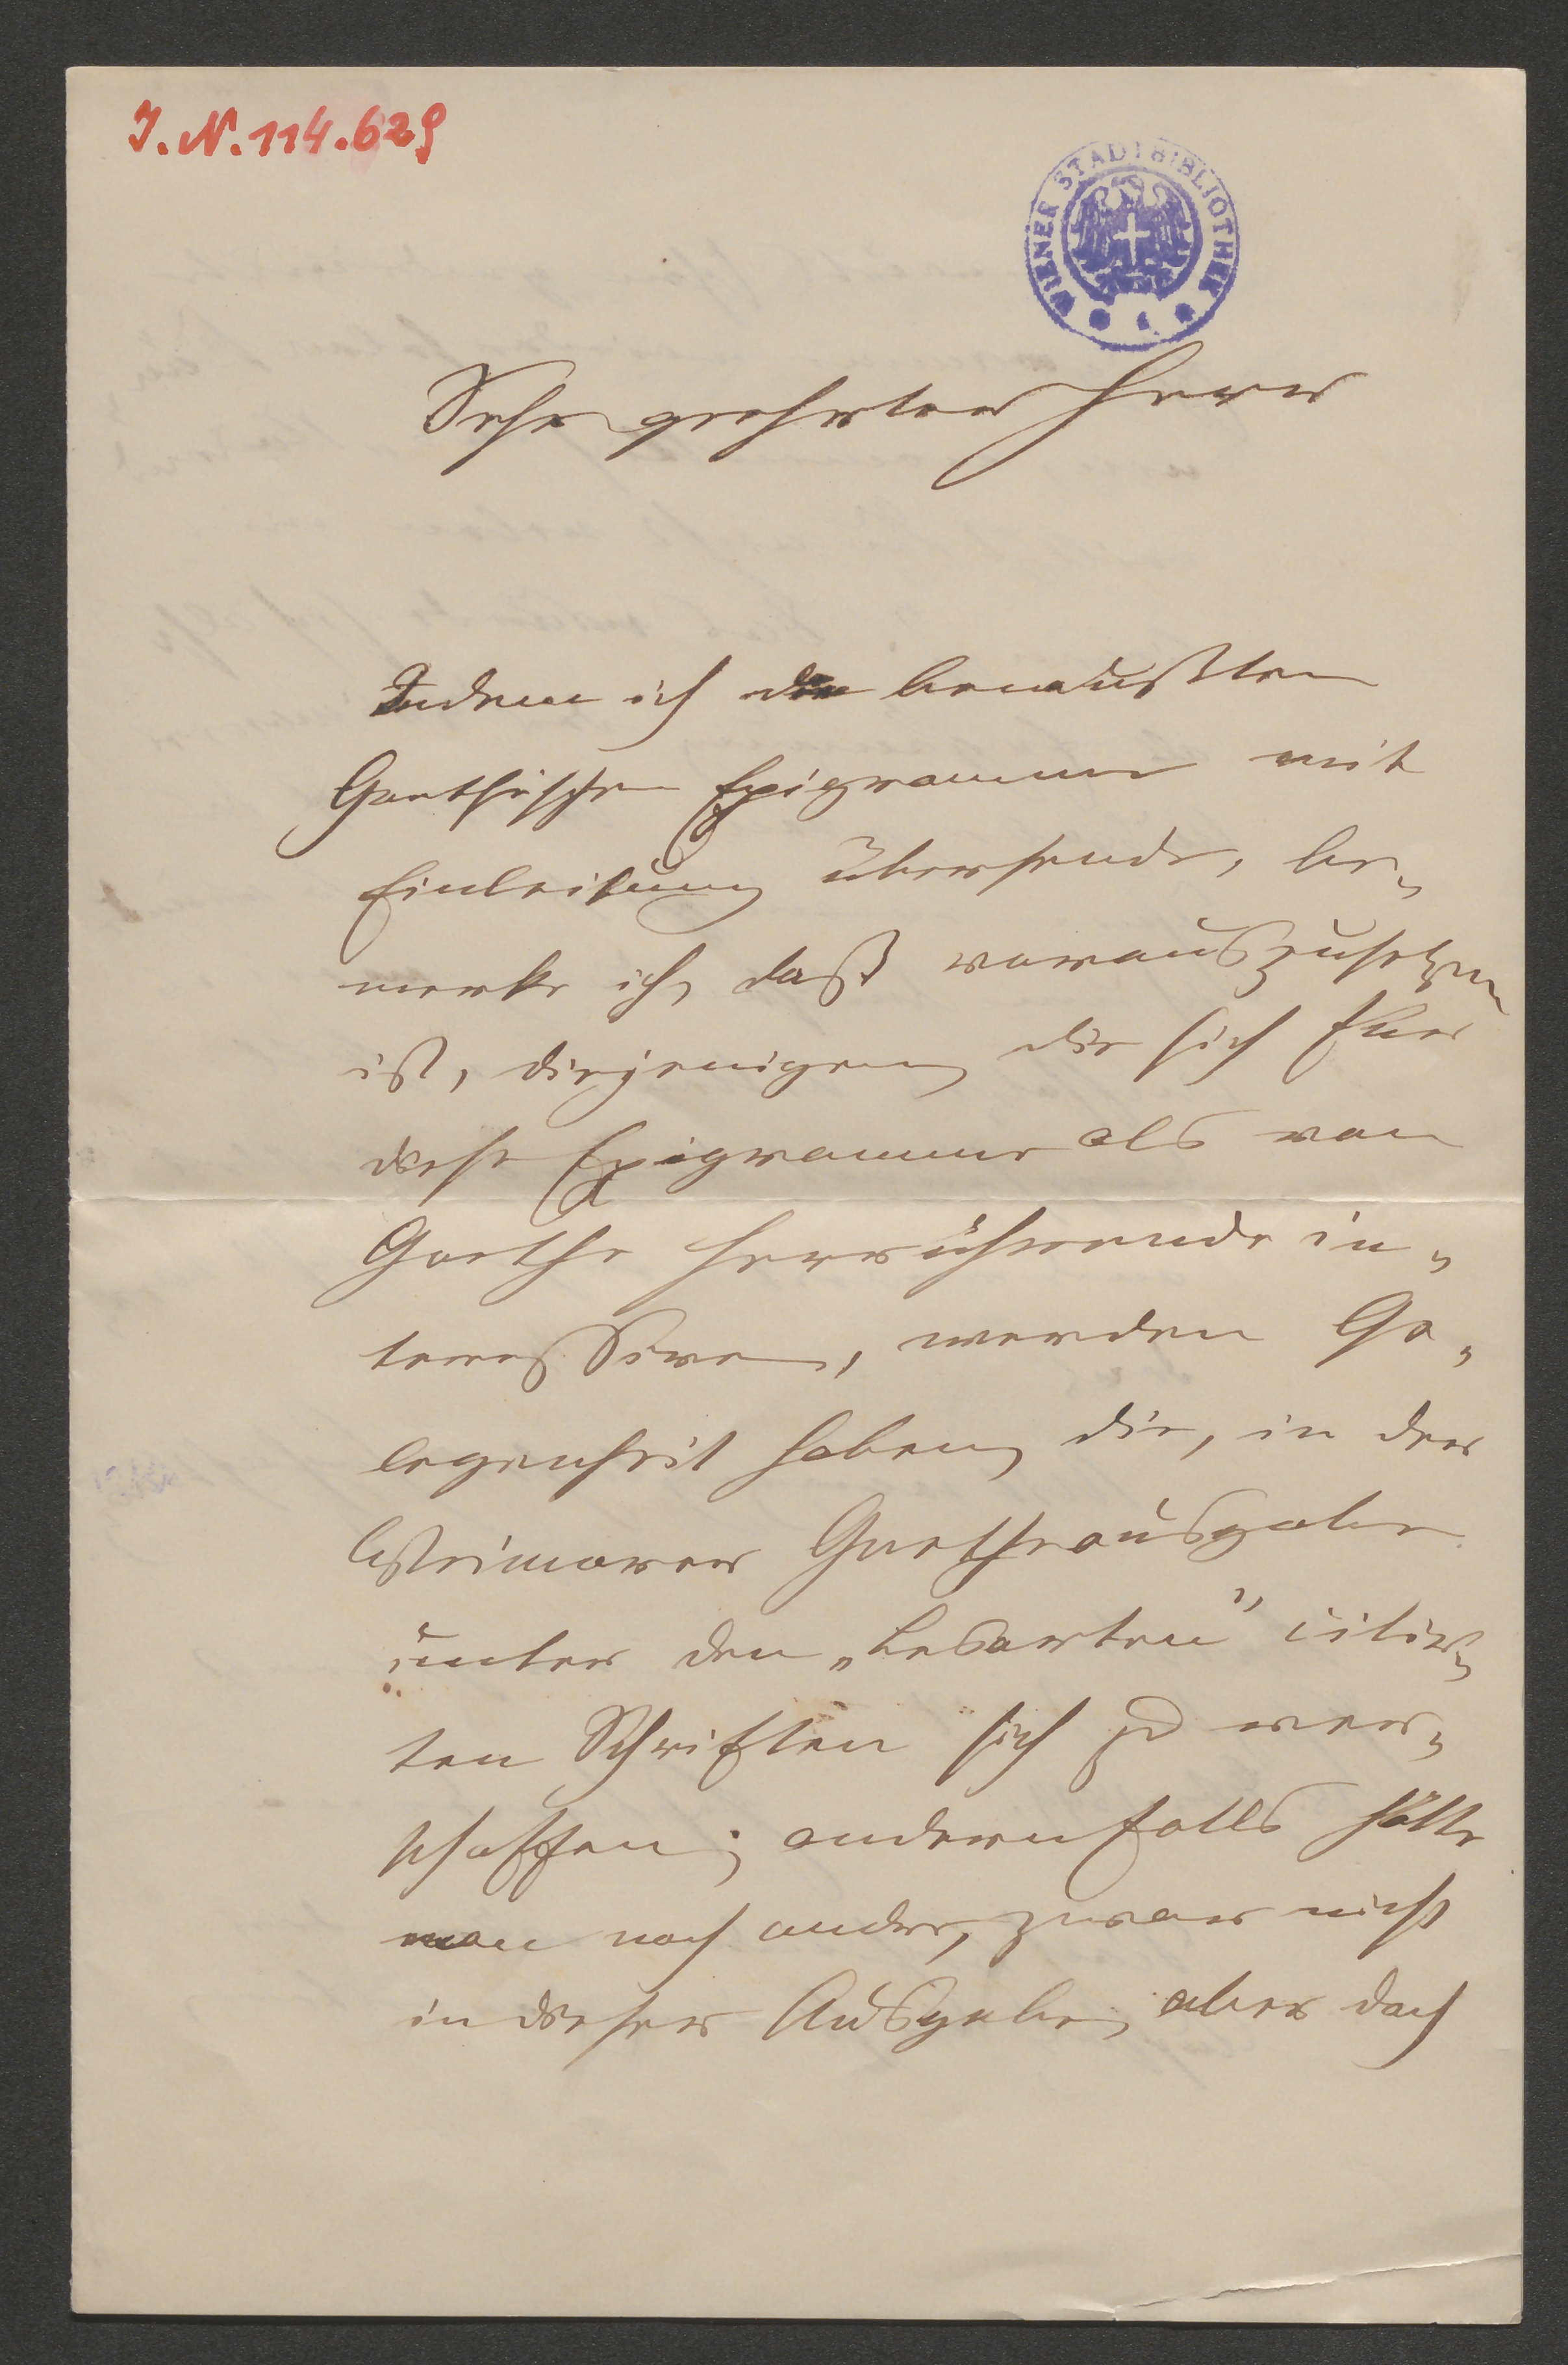 I. N. 114.629
WIENER STADTBIBLIOTHEK
Sehr geehrter Herr
Indem ich die bewußten
Goethischen Epigramme mit
Einleitung übersende, be-
merke ich, daß vorauszusetzen
ist, diejenigen die sich für
diese Epigramme als von
Goethe herrührende in-
teressiren, werden Ge-
legenheit haben, die, in der
Weimarer Goetheausgabe
unter den „Lesarten" citir-
ten Schriften sich zu ver-
schaffen; andernfalls hätte
man noch andre, zwar nicht
in dieser Ausgabe, aber doch